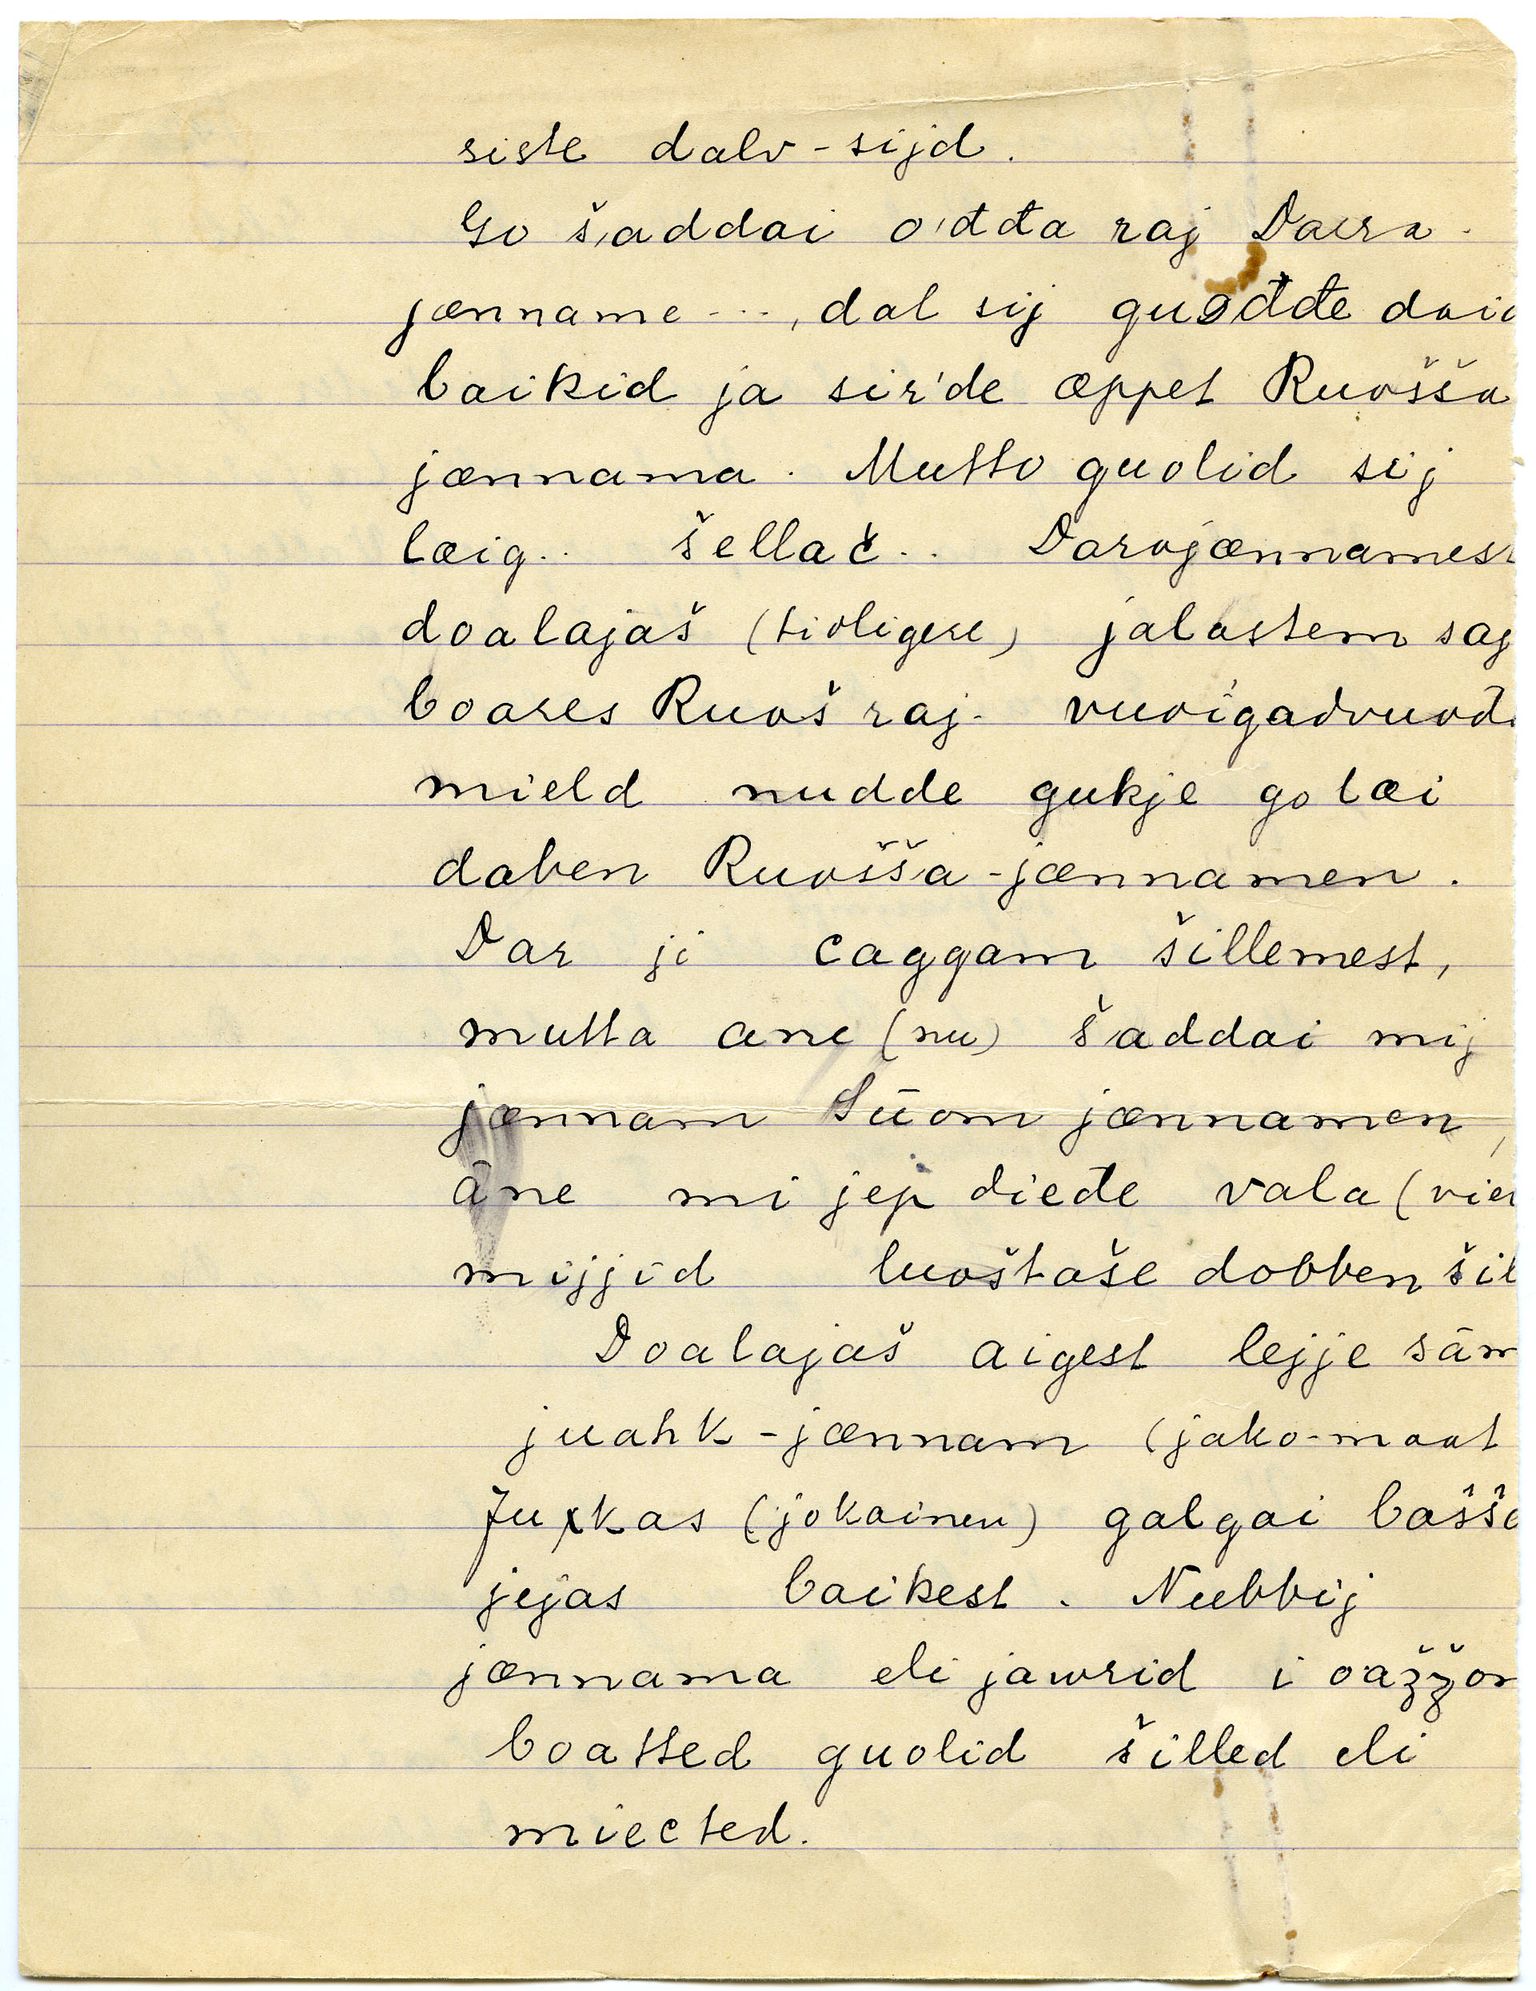 siste dalv-sijd.
Go šaddai o'đđa raj Daɛra-
jœnname ..., dal sij guođđe doid
baikid ja sir'de œppet Ruošša
jœnnama. Mutto guolid sij
lœig.. šellač.. Darojœnnamest
doalajaš (tidligere) jalostem saj
boares Ruoš raj- vuoigadvuođ
mield nudde gukje go lœi
daben Ruošša-jœnnamen.
Dar ji caggam šillemest,
mutta ane (nu) šaddai mij
jœnnam Sūom jœnnamen,
āne mi jep dieđe vala (vie
mijjid luoštaše dobben šil
Doalajaš aigest lejje sām
juahk-jœnnam (jako-maat
Juxkas (jokainen) galgai bašš
jejas baikest. Nubbij
jœnnama eli jawrid i oaǯǯon
boatted guolid šilled eli
miected.